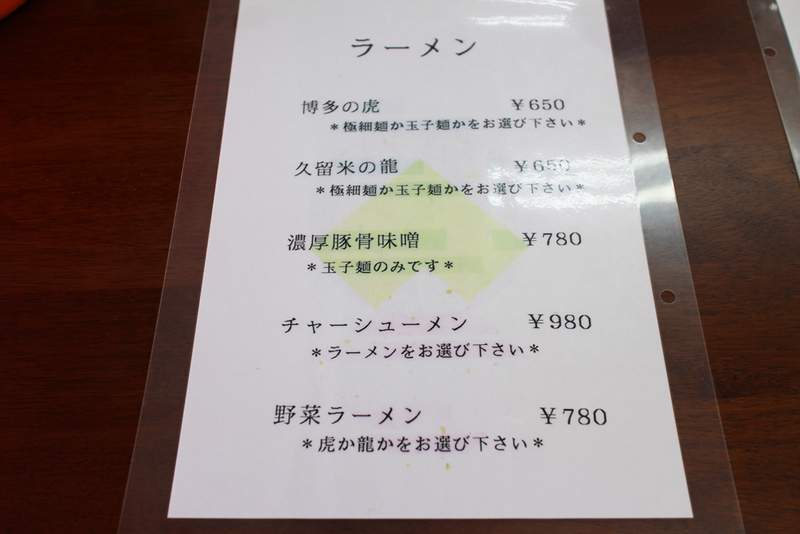 ラーメン
博多の虎 ￥650
＊極細麺か玉子麺かをお選び下さい＊
久留米の龍 ￥650
＊極細麺か玉子麺かをお選び下さい＊
濃厚豚骨味噌 ￥780
＊玉子麺のみです＊
チャーシューメン ￥980
＊ラーメンをお選び下さい＊
野菜ラーメン ￥780
＊虎か龍かをお選び下さい＊